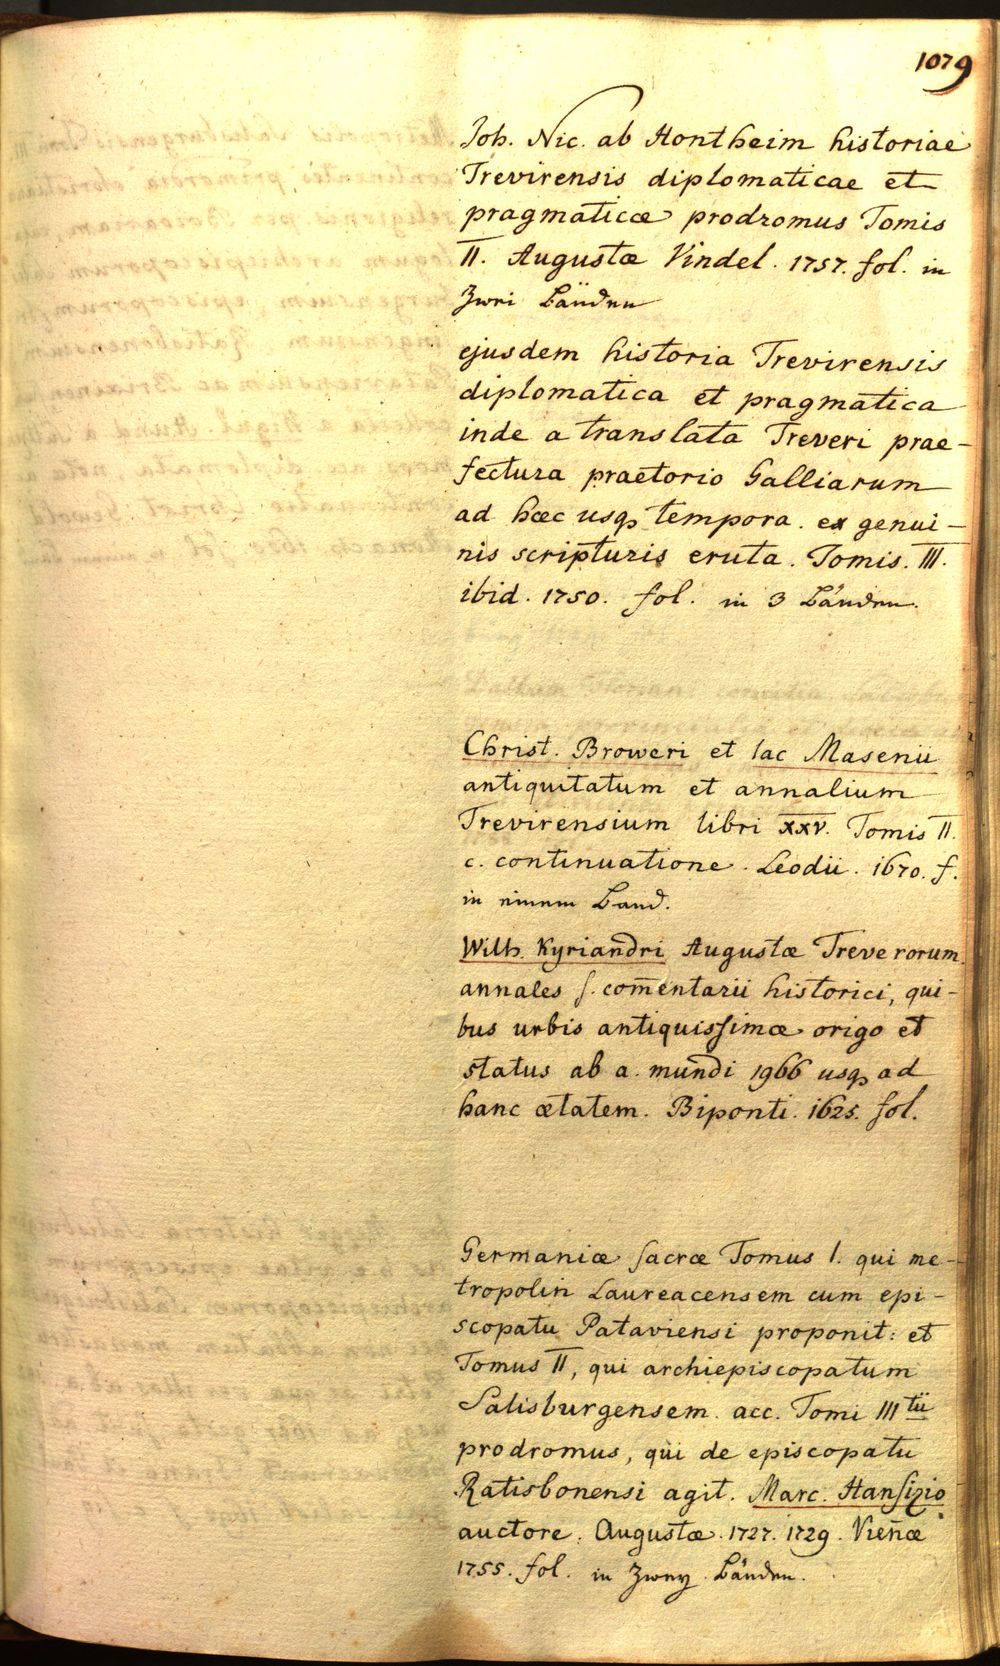 1079
Joh. Nic. ab Hontheim historiae
Trevirensis diplomaticae et
pragmaticæ prodromus Tomis
II. Augustæ Vindel. 1757. fol. in
Zwei Bänden
ejusdem historia Trevirensis
diplomatica et pragmatica
inde a translata Treveri prae-
fectura praetorio Galliarum
ad hæc usqꝫ tempora. ex genui-
nis scripturis eruta. Tomis. III.
ibid. 1750. fol. in 3 Bänden.
Christ. Broweri et Iac Masenii
antiquitatum et annalium
Trevirensium libri XXV. Tomis II.
c. continuatione. Leodii. 1670. f.
in einem Band.
Wilh. Kyriandri Augustæ Treverorum
annales ſ. com̄entarii historici, qui-
bus urbis antiquisſimæ origo et
status ab a. mundi 1966 usqꝫ ad
hanc ætatem. Biponti. 1625. fol.
Germaniæ ſacræ Tomus I. qui me-
tropolin Laureacensem cum epi-
scopatu Pataviensi proponit: et
Tomus II, qui archiepiscopatum
Salisburgensem. acc. Tomi III tii
prodromus, qui de episcopatu
Ratisbonensi agit. Marc. Hanſizio
auctore. Augustæ. 1727. 1729. Vien̄æ
1755. fol. in Zwey Bänden.